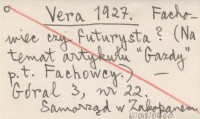 Vera 1927. Facho-
wiec czy futurysta? (Na
temat artykułu "Gazdy"
p.t. Fachowcy.) —
Góral 3, nr 22.
Samorząd w Zakopanem.